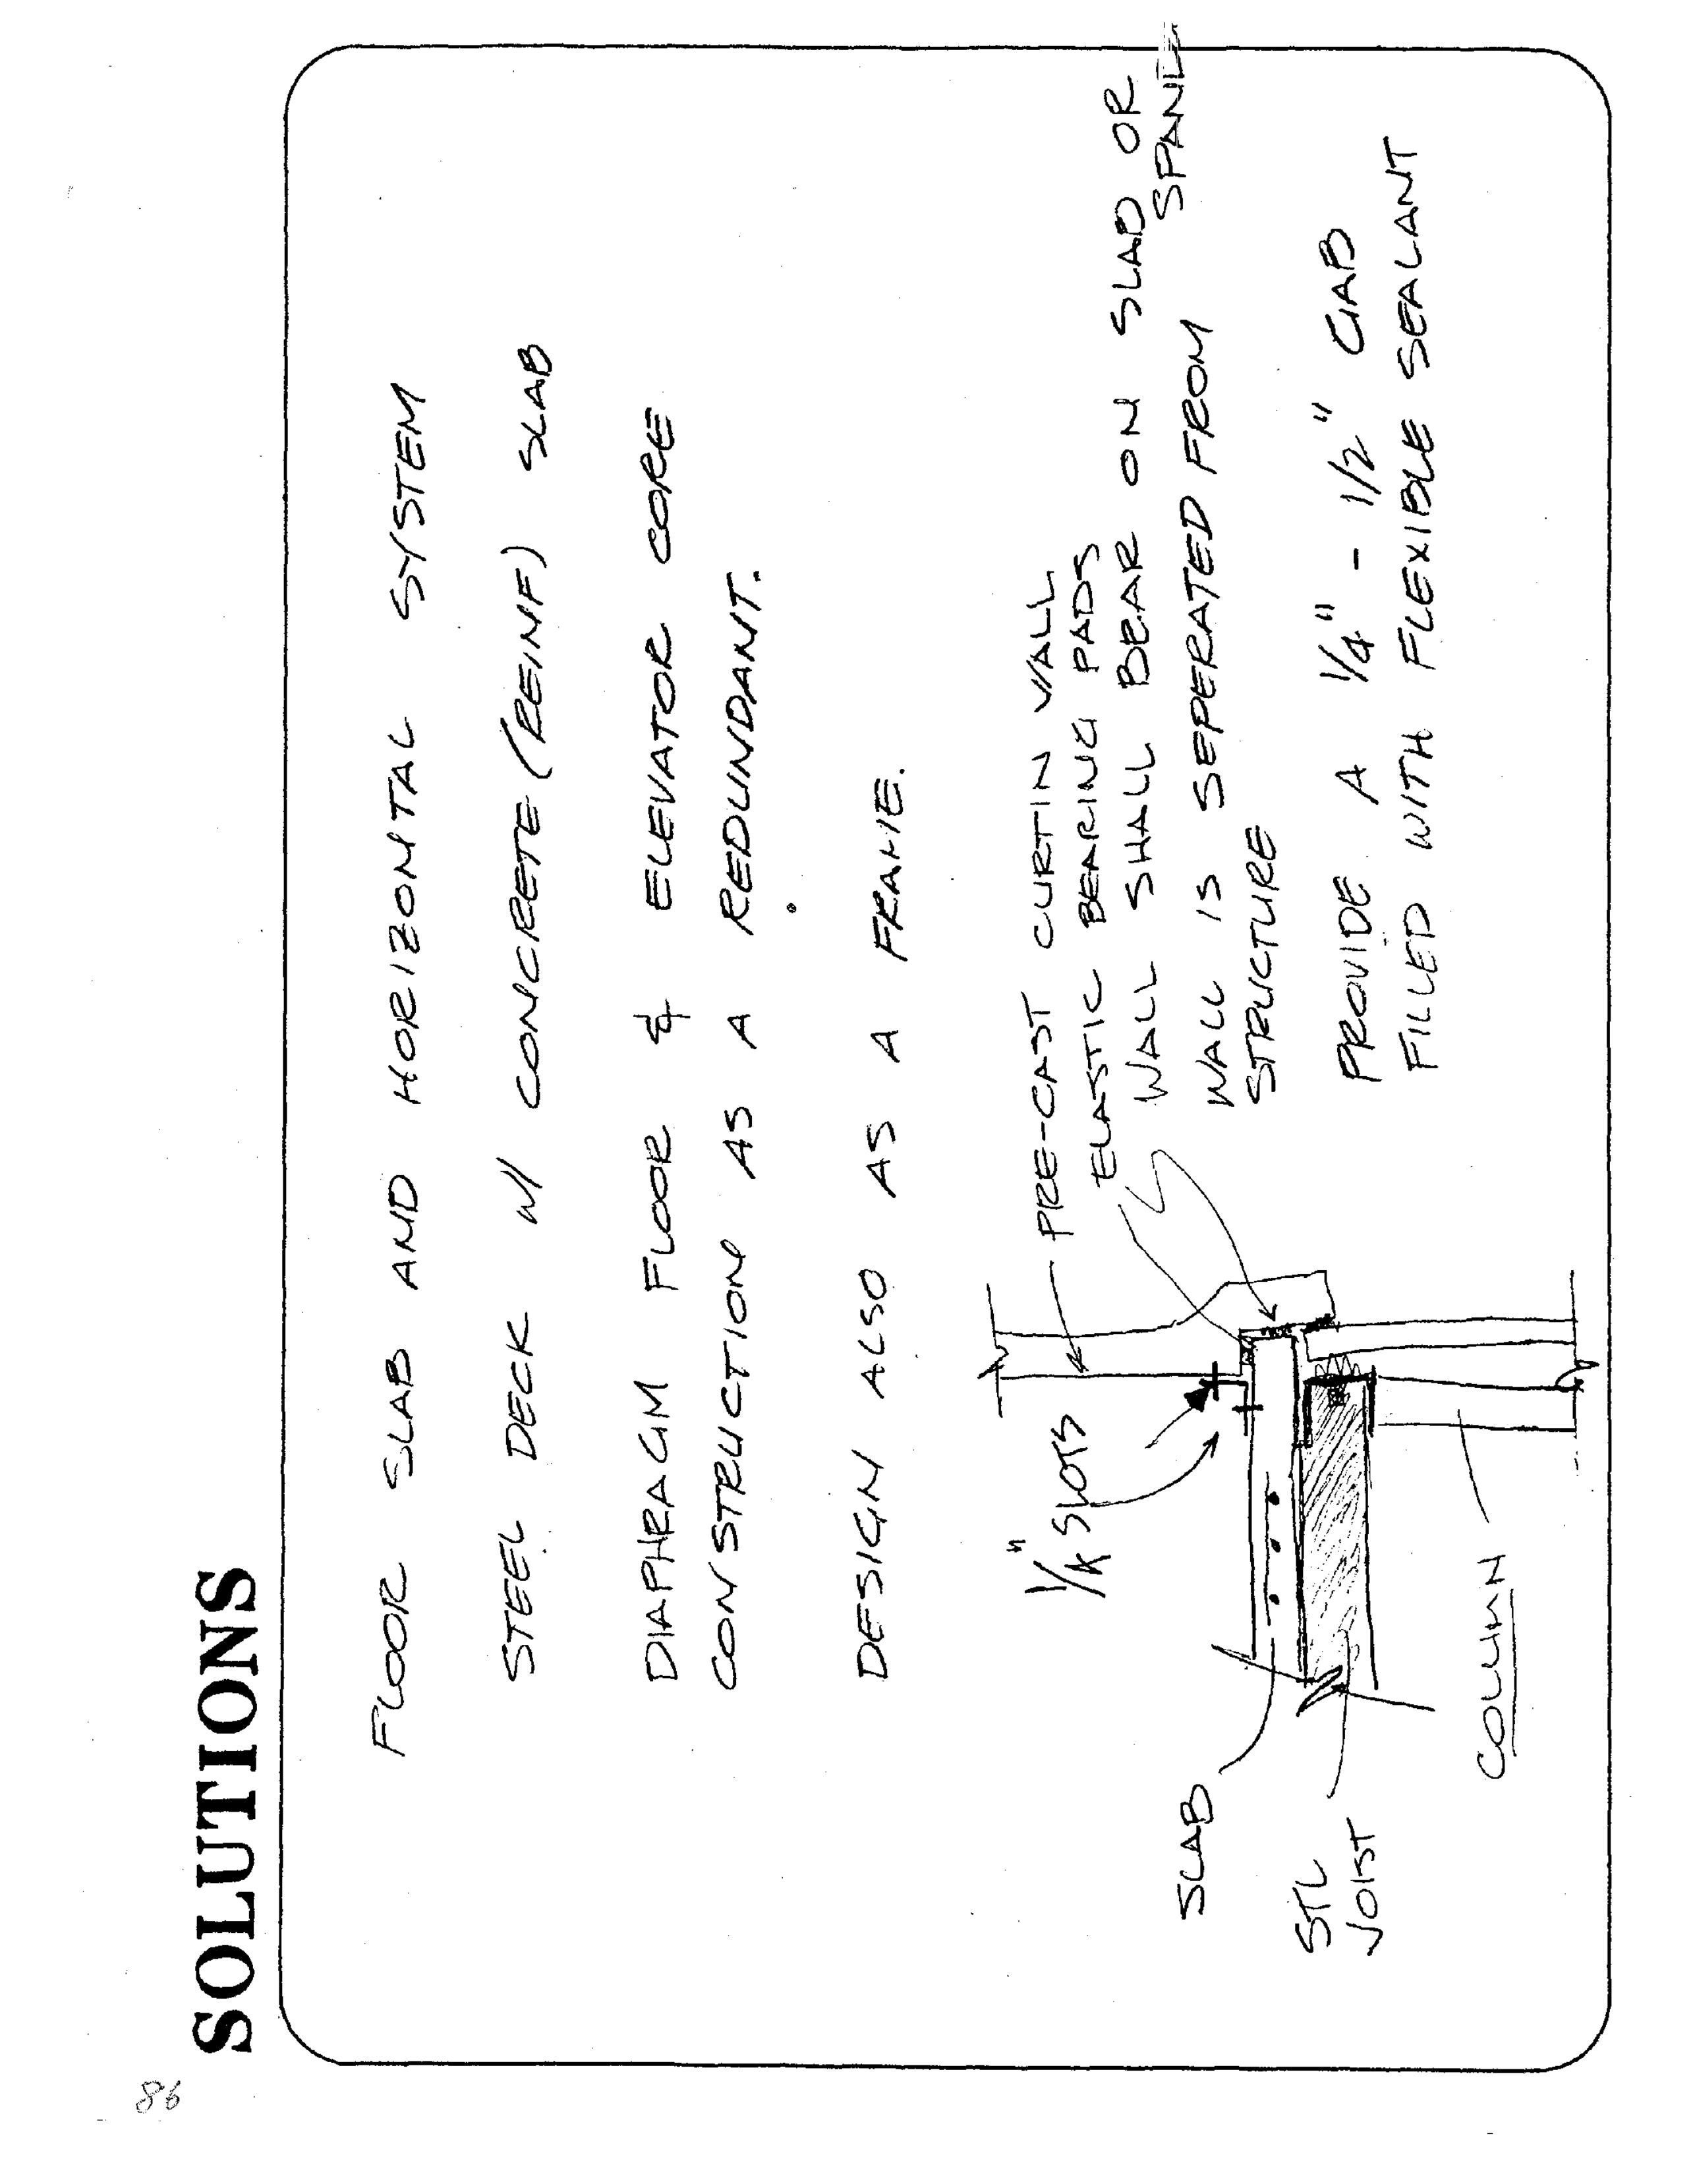 86
SOLUTIONS
FLOOR SLAB AND HORIZONTAL SYSTEM
STEEL DECK W/ CONCRETE (REINF) SLAB
DIAPHRAGM FLOOR & ELEVATOR CORE
CONSTRUCTION AS A REDUNDANT.
DESIGN ALSO AS A FRAME.
PRE-CAST CURTIN WALL
ELASTIC BEARING PADS
WALL SHALL BEAR ON SLAB OR
SPAND
WALL IS SEPERATED FROM
STRUCTURE
PROVIDE A 1/4" - 1/2" GAB
FILLED WITH FLEXIBLE SEALANT
SLOTS
SLAB
STL
JOIST
COLUMN